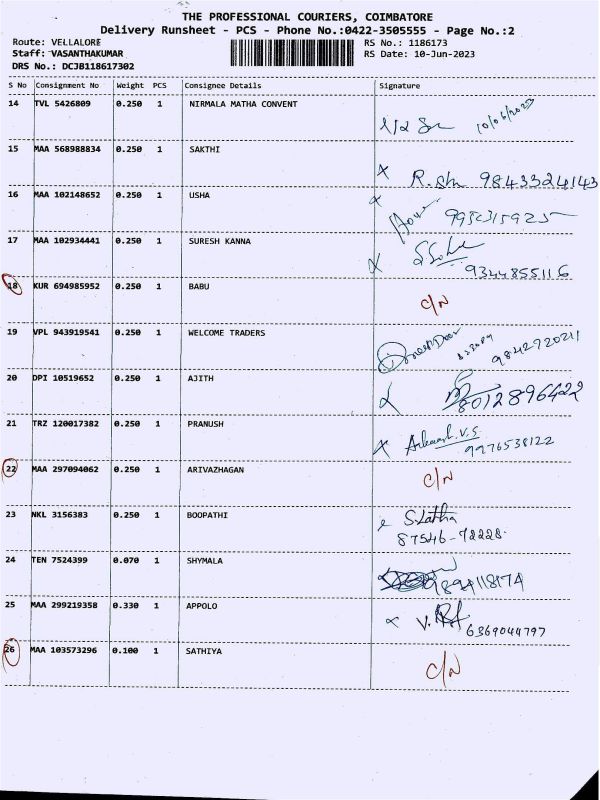 THE PROFESSIONAL COURIERS, COIMBATORE
Delivery Runsheet - PCS - Phone No.:0422-3505555 - Page No.:2
Route: VELLALORE RS No.: 1186173
Staff: VASANTHAKUMAR RS Date: 10-Jun-2023
DRS No.: DCJB118617302
S No Consignment No Weight PCS Consignee Details Signature
14 TVL 5426809 0.250 1 NIRMALA MATHA CONVENT
10/06/2023
15 MAA 568988834 0.250 1 SAKTHI
9843324143
16 MAA 102148652 0.250 1 USHA
17 MAA 102934441 0.250 1 SURESH KANNA
9344855116
18 KUR 694985952 0.250 1 BABU
C/N
19 VPL 943919541 0.250 1 WELCOME TRADERS
9842720211
20 DPI 10519652 0.250 1 AJITH
8012896422
21 TRZ 120017382 0.250 1 PRANUSH
9976538122
22 MAA 297094062 0.250 1 ARIVAZHAGAN
C/N
23 NKL 3156383 0.250 1 BOOPATHI
S.Latha
87546-72228
24 TEN 7524399 0.070 1 SHYMALA
9894118174
25 MAA 299219358 0.330 1 APPOLO
6369044797
26 MAA 103573296 0.100 1 SATHIYA
C/N